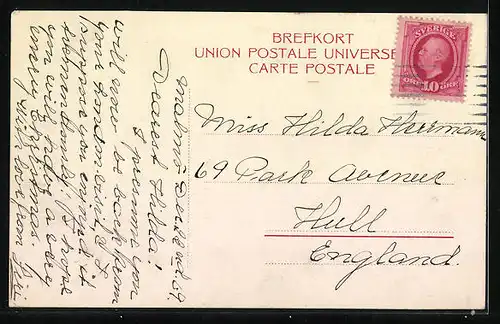 BREFKORT
UNION POSTALE UNIVERSE
CARTE POSTALE
SVERIGE
ÖRE 10 ÖRE
Miss Hilda Herrmann
69 Park Avenue
Hull
England.
Malmö
Dearest Hilda!
I presume you
will now be back from
your London visit, &
suppose you enjoyed it
tremendously. I hope
you will enjoy a very
merry Christmas.
With love from